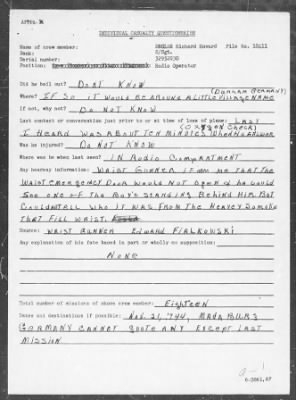 AFPPA-
INDIVIDUAL CASUALTY QUESTIONNAIRE
Name of crew member: Richard Howard File No. 10411
Rank: S/Sgt.
Serial number: 32958938
Position: Radio Operator
Did he bail out? DONT KNOW
(DURHAM GERMANY)
Where? IF SO IT WOULD BE AROUND A LITTLE VILLAGE NAME
If not, why not? DO NOT KNOW
Last contact or conversation just prior to or at time of loss: LAST
(OXYGEN CHECK)
I HEARD WAS ABOUT TEN MINUTES WHEN HE ANSWER
Was he injured? DO NOT KNOW
Where was he when last seen? IN RADIO COMPARTMENT
Any hearsay information: WAIST GUNNER THAT THE
WAIST EMERGENCY DOOR WOULD NOT OPEN HE COULD
SEE ONE OF THE BOY'S STANDING BEHIND HIM BUT
COULDNT TELL WHO IT WAS FROM THE HEAVEY SMOKE
THAT FILL WAIST.
Source: WAIST GUNNER EDWARD FIALKOWSKI
Any explanation of his fate based in part or wholly on supposition:
NONE
Total number of missions of above crew member: EIGHTEEN
Dates and destinations if possible: NOV. 21, '44, MERSBURG
GERMANY CANNOT QUOTE ANY EXCEPT LAST
MISSION
6-3861,AF